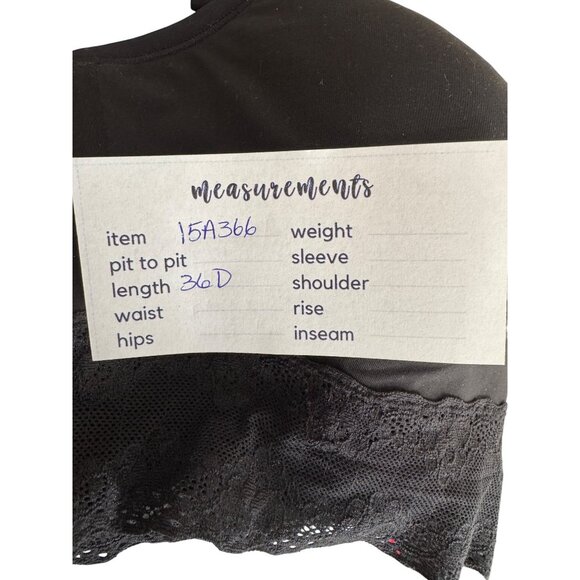 measurements
item 15A366 weight
pit to pit sleeve
length 36D shoulder
waist rise
hips inseam